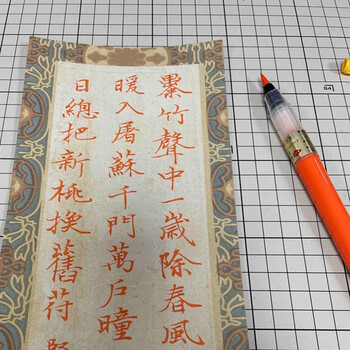 竹聲中一歲除春風
暖入屠蘇千門萬戶曈
日總把新桃換舊符
B4